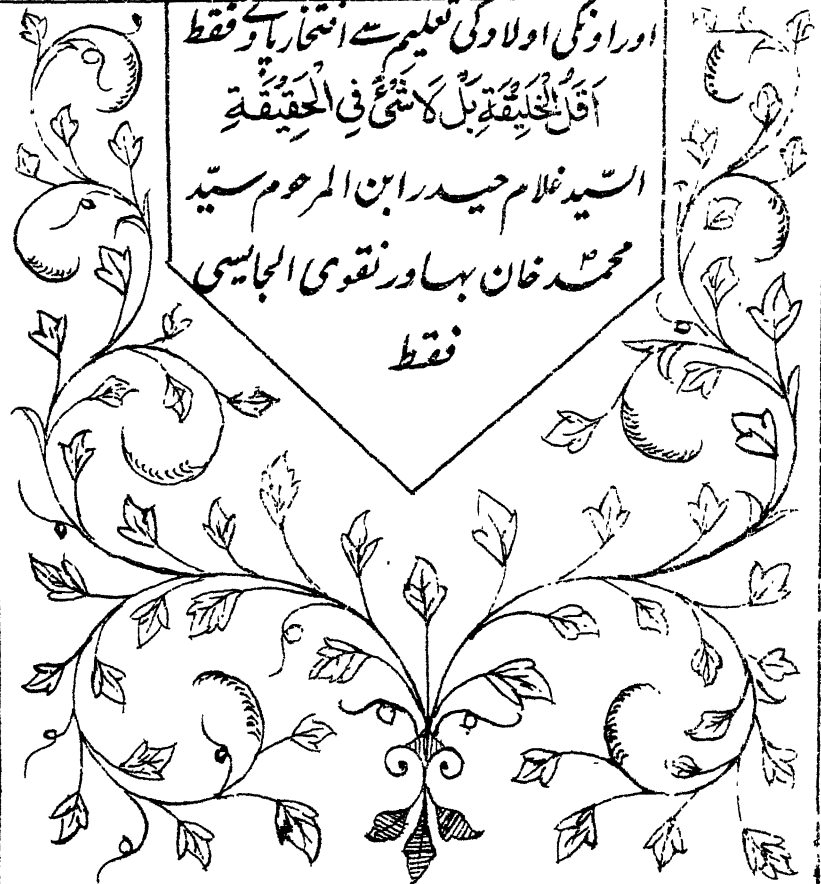 اور اونکی اولاد کی تعلیم سے افتخار پاوے فقط
اَقَلُّ الْخَلِیْقَةِ بَلْ لَا شَیْءَ فِی الْحَقِیْقَةِ
السّید غلام حیدر ابن المرحوم سیّد
محمد خان بہادر نقوی الجایسی
فقط